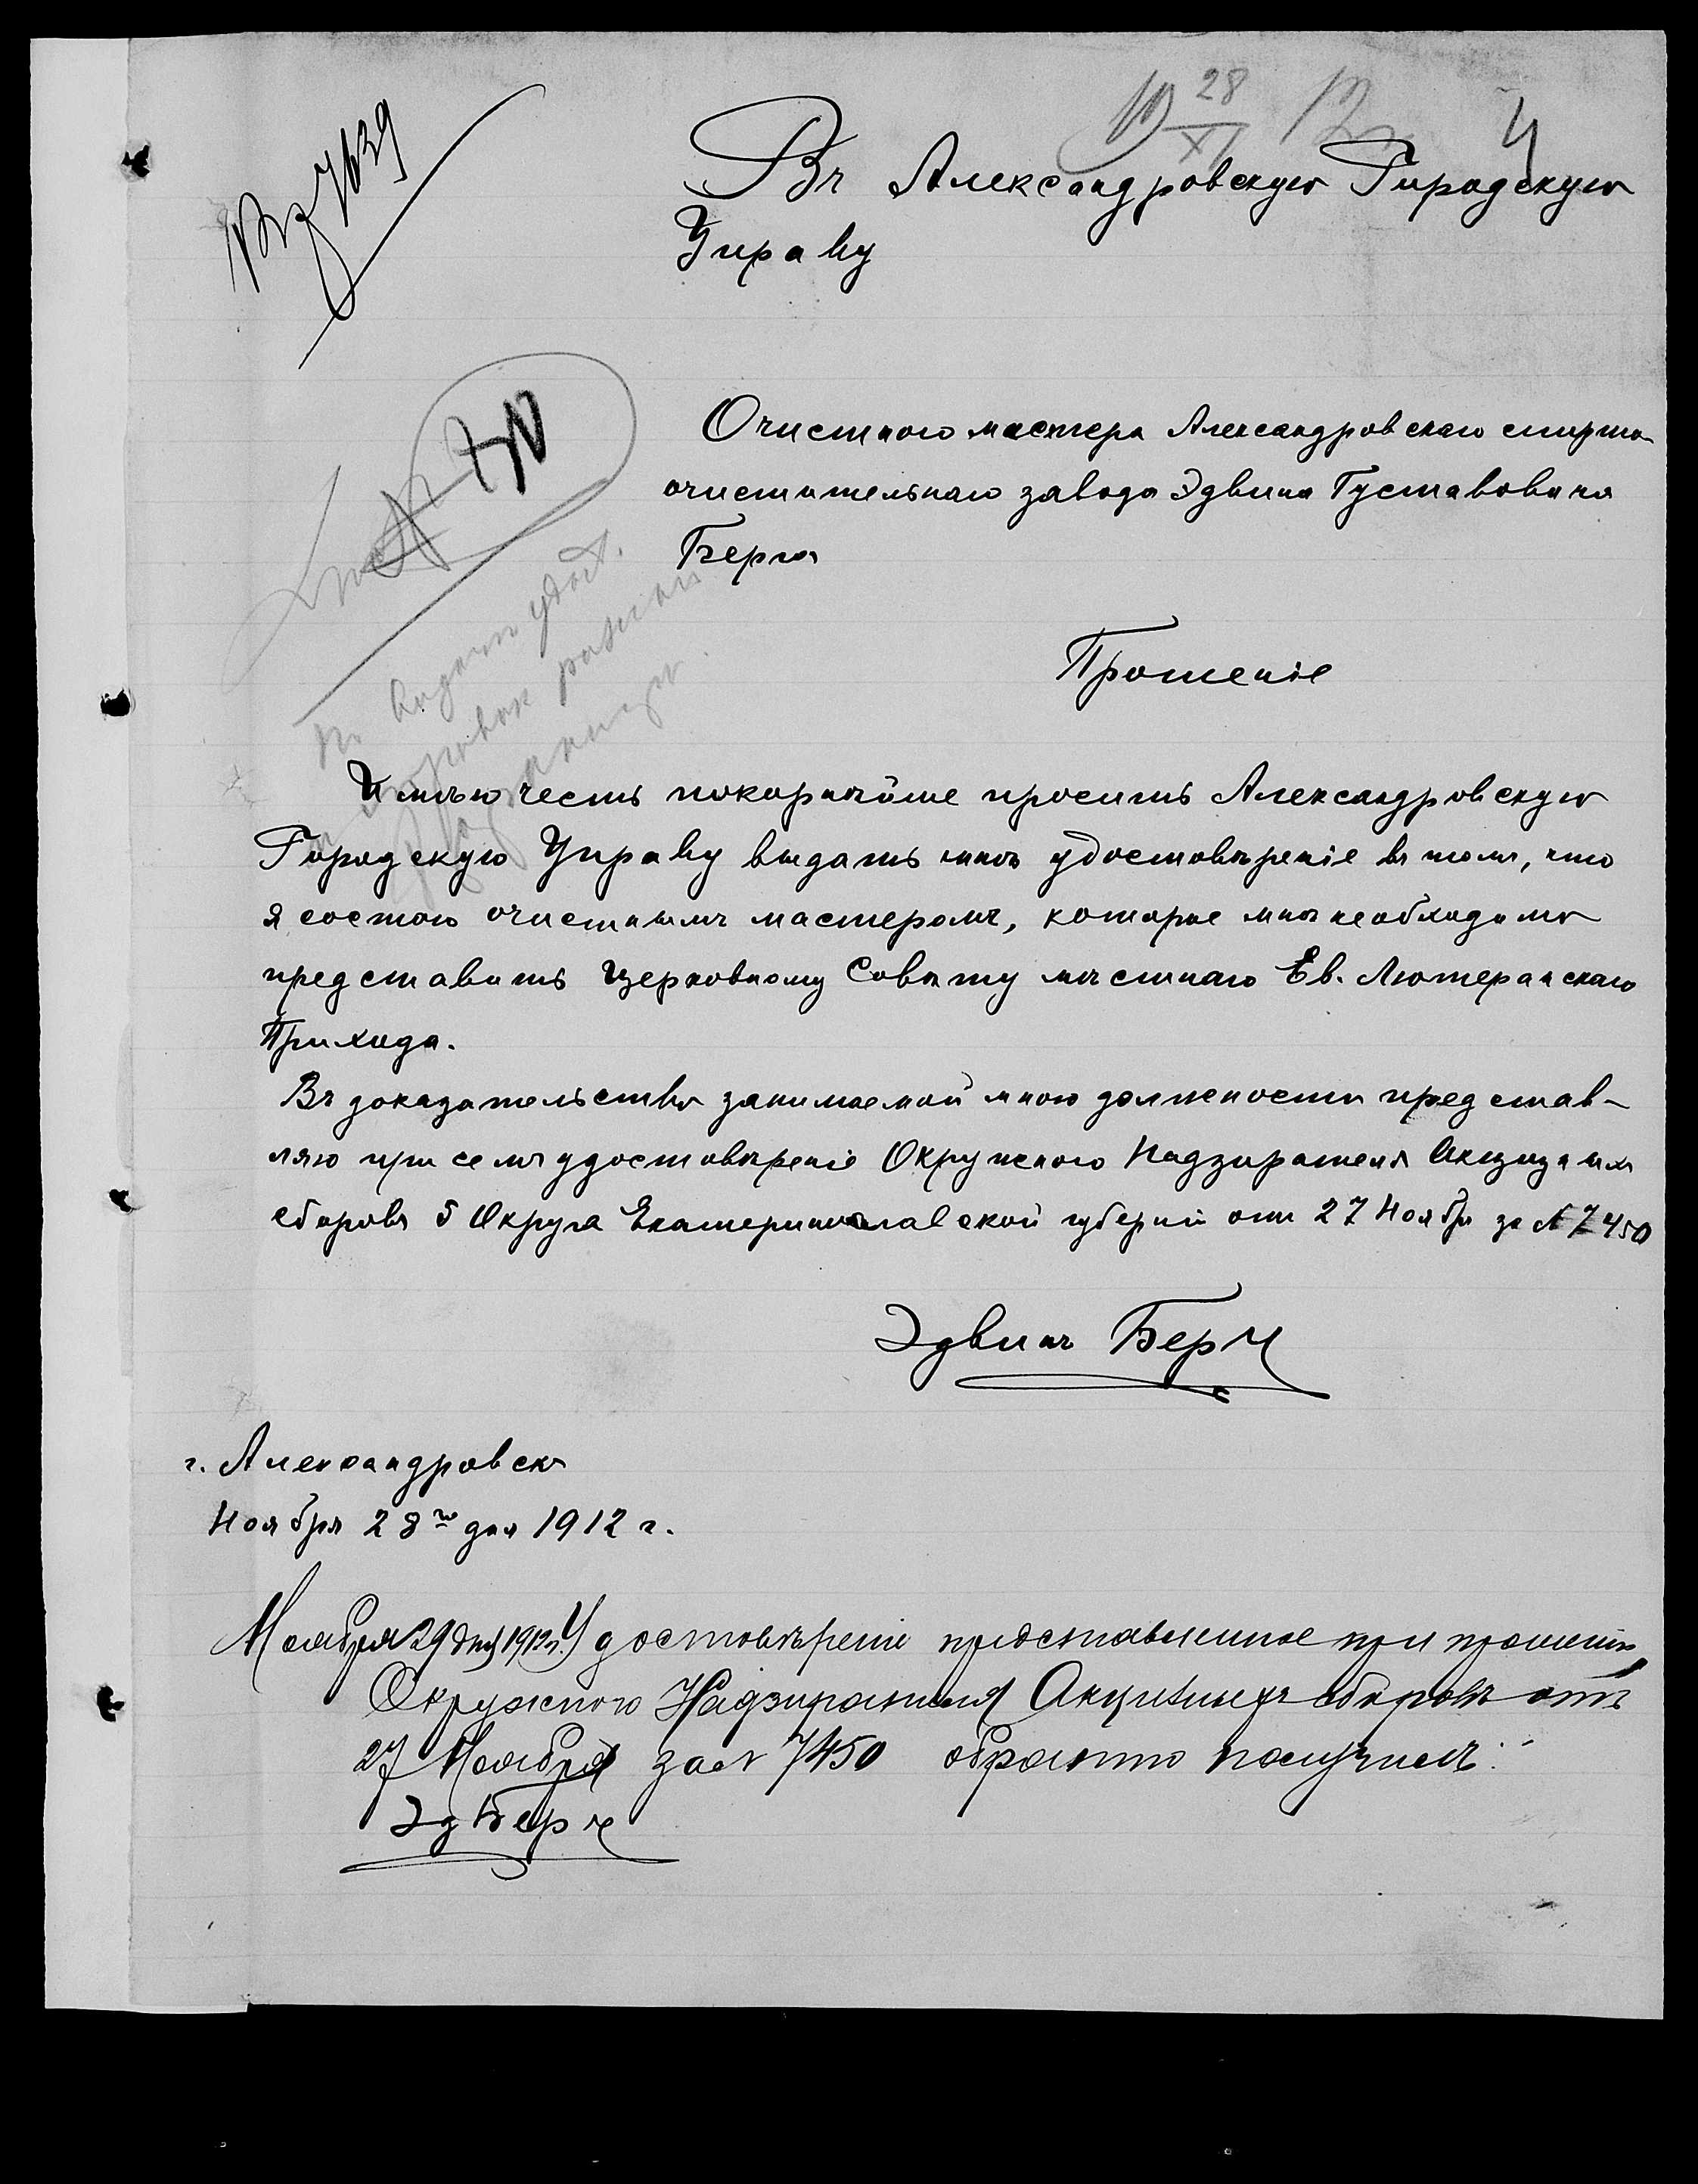 28
XI
12
4
№ 7639
Въ Александровскую Городскую
Управу
Очистного мастера Александровскаго спирто-
очистительнаго завода Эдвина Густавовича
Берга
Прошеніе
Имѣю честь покорнѣйше просить Александровскую
Городскую Управу выдать мнѣ удостовѣреніе въ томъ, что
я состою очистнымъ мастеромъ, которое мнѣ необходимо
представить Церковному Совѣту мѣстнаго Ев. Лютеранскаго
Прихода.
Въ доказательство занимаемой мною должности представ-
ляю при семъ удостовѣреніе Окружного Надзирателя Акцизныхъ
сборовъ 5 Округа Екатеринославской губерніи отъ 27 Ноября за № 7450
Эдвинъ Бергъ
г. Александровскъ
Ноября 28го дня 1912 г.
Ноября 29 дня 1912 г. Удостовѣреніе представленное при прошеніи
Окружного Надзирателя Акцизныхъ сборовъ отъ
27 Ноября за № 7450 обратно получилъ:
Эд Бергъ